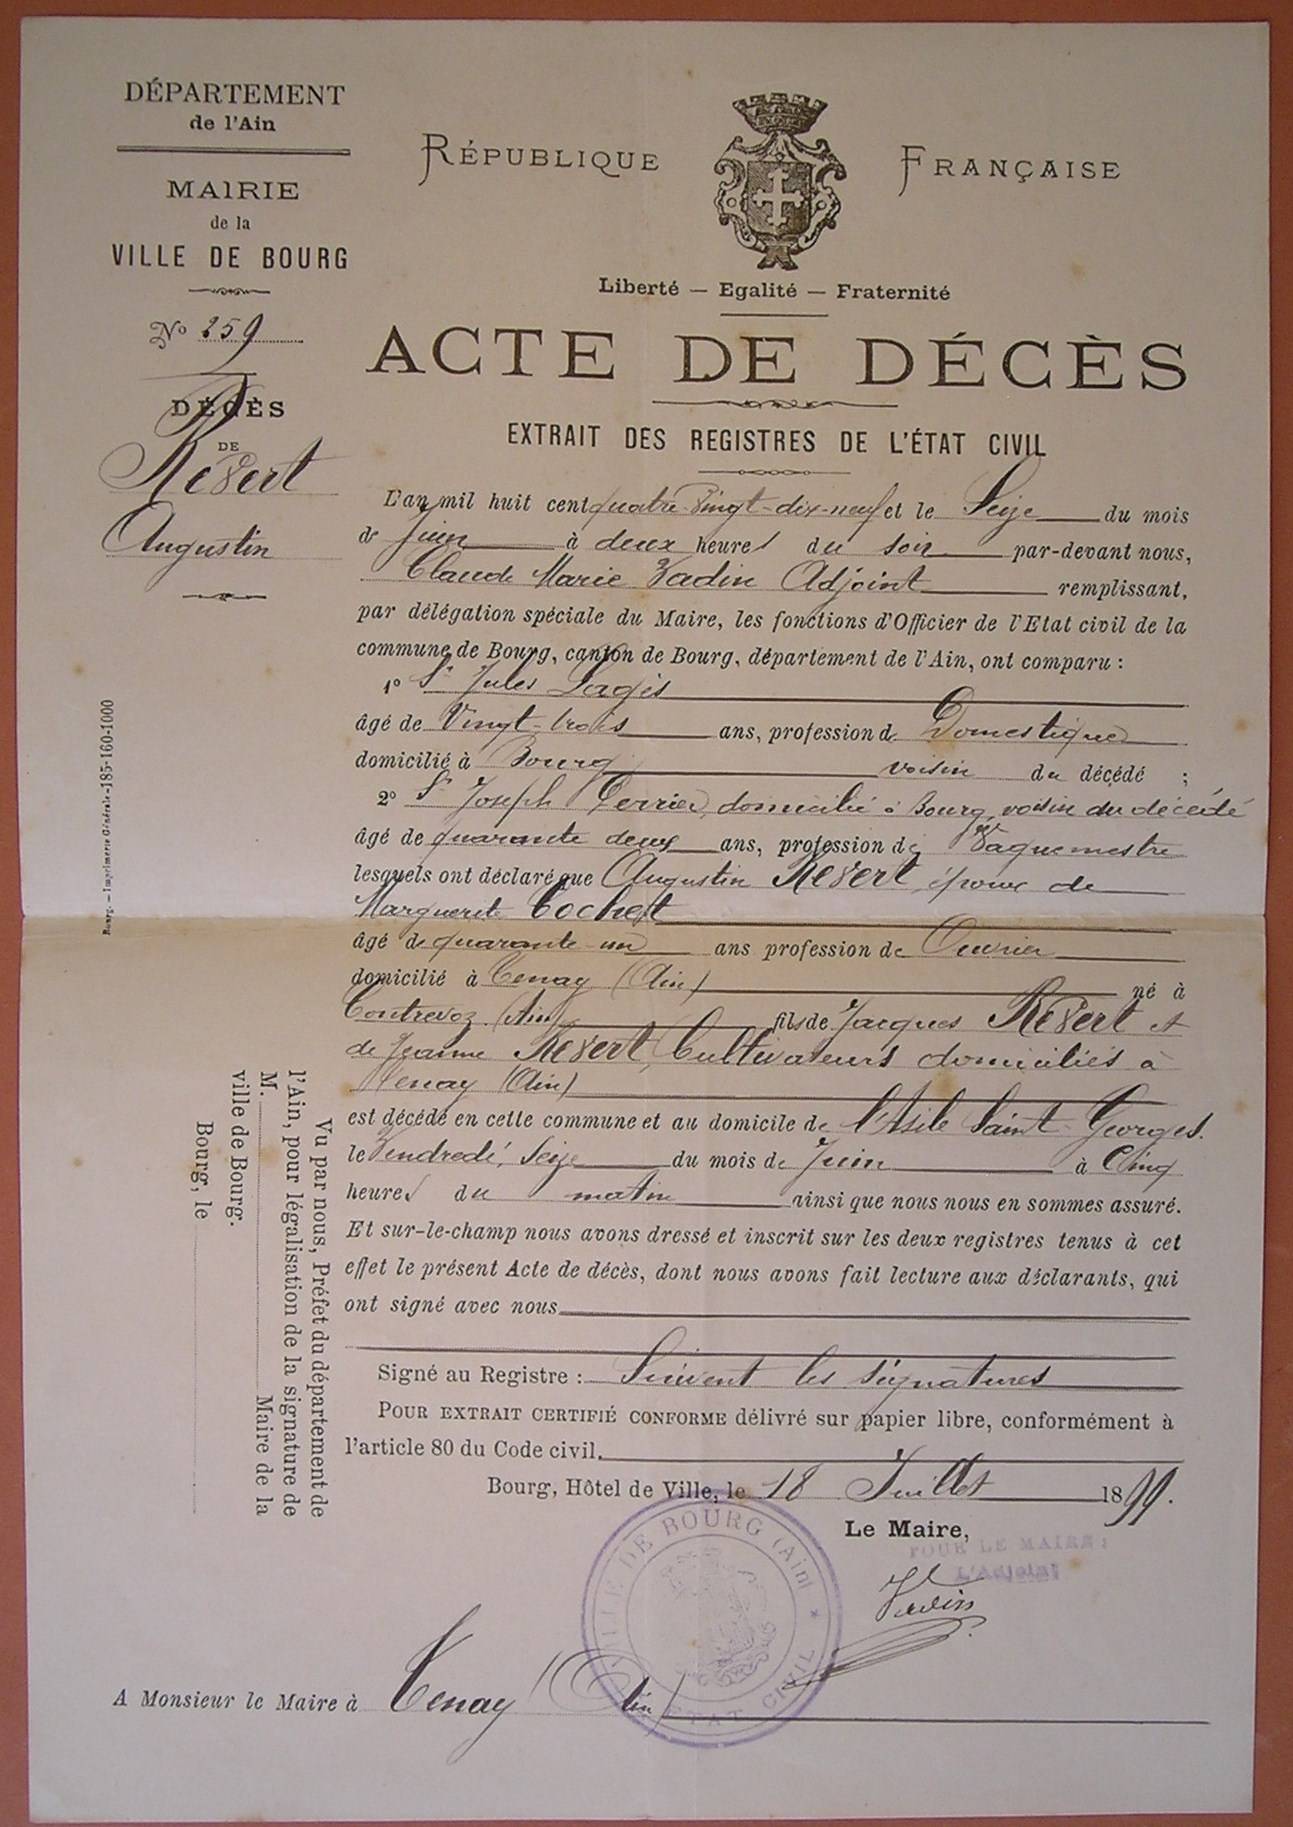 DÉPARTEMENT
de l'Ain
MAIRIE
de la
VILLE DE BOURG
No 259
DÉCÈS
DE
Révert
Augustin
RÉPUBLIQUE FRANÇAISE
Liberté — Egalité — Fraternité
ACTE DE DÉCÈS
EXTRAIT DES REGISTRES DE L'ÉTAT CIVIL
L'an mil huit cent quatre-vingt-dix-neuf et le Seize du mois
de Juin à deux heures du soir par-devant nous,
Claude Marie Vadin Adjoint remplissant,
par délégation spéciale du Maire, les fonctions d'Officier de l'Etat civil de la
commune de Bourg, canton de Bourg, département de l'Ain, ont comparu :
1o Sr Jules Lagès
âgé de Vingt-trois ans, profession de Domestique
domicilié à Bourg voisin du décédé ;
2o Sr Joseph Perrier, domicilié à Bourg, voisin du décédé
âgé de quarante deux ans, profession de Vaguemestre
lesquels ont déclaré que Augustin Révert, époux de
Marguerite Cochet
âgé de quarante-un ans profession de Ouvrier
domicilié à Tenay (Ain) né à
Contrevoz (Ain) fils de Jacques Révert et
de Jeanne Révert, Cultivateurs domiciliés à
Tenay (Ain)
est décédé en cette commune et au domicile de l'Asile Saint-Georges.
le Vendredi, Seize du mois de Juin à Cinq
heures du matin ainsi que nous nous en sommes assuré.
Et sur-le-champ nous avons dressé et inscrit sur les deux registres tenus à cet
effet le présent Acte de décès, dont nous avons fait lecture aux déclarants, qui
ont signé avec nous
Signé au Registre : Suivent les signatures
POUR EXTRAIT CERTIFIÉ CONFORME délivré sur papier libre, conformément à
l'article 80 du Code civil.
Bourg, Hôtel de Ville, le 18 Juillet 1899.
Le Maire,
POUR LE MAIRE :
L'Adjoint
Vadin
VILLE DE BOURG (Ain) * ETAT CIVIL
A Monsieur le Maire à Tenay (Ain)
Bourg. — Imprimerie Générale - 185-160-1000
Vu par nous, Préfet du département de
l'Ain, pour légalisation de la signature de
M. Maire de la
ville de Bourg.
Bourg, le